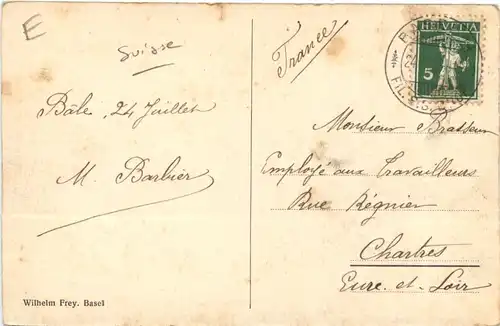 E
Suisse
(France)
HELVETIA
5
Bâle, 24 Juillet
M. Barbier
Monsieur Brasseur
Employé aux Travailleurs
Rue Régnier
Chartres
Eure-et-Loir
Wilhelm Frey. Basel